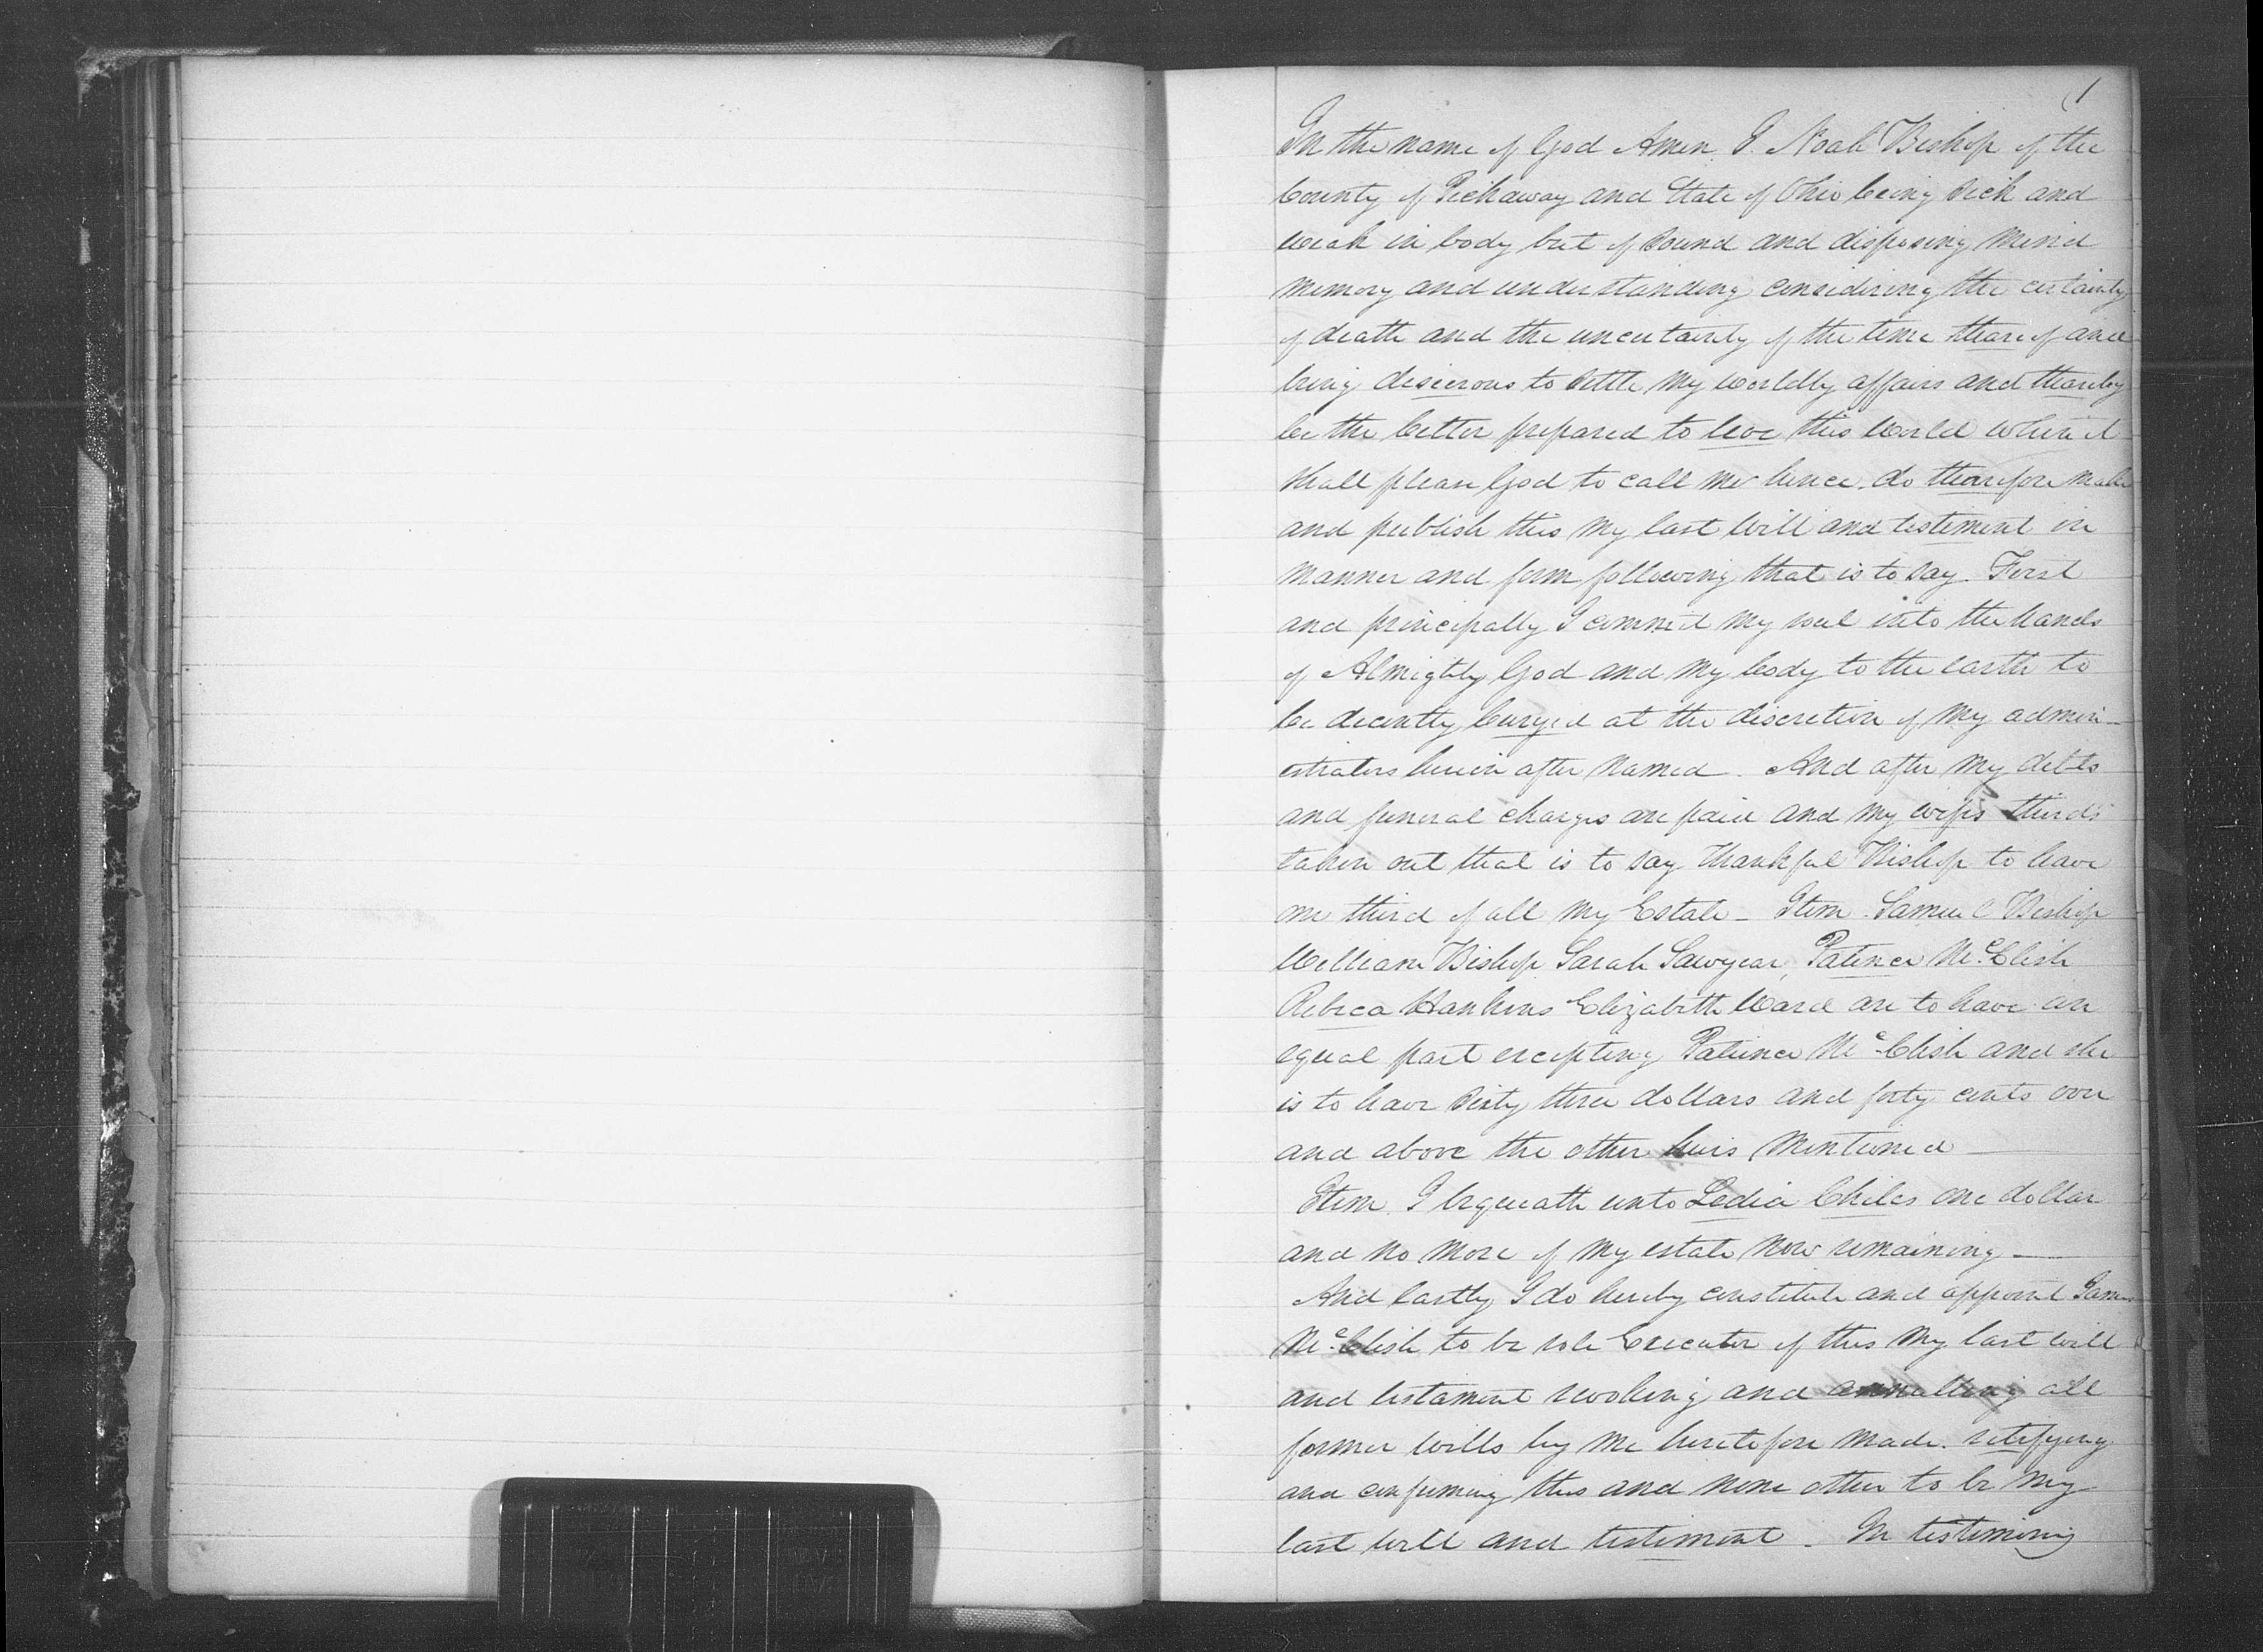 1
In the name of God Amen. I. Noah Bishop of the
County of Pickaway and State of Ohio being sick and
weak in body but of sound and disposing mind
memory and understanding considering the certainty
of death and the uncertainty of the time thareof and
being desierous to settle my worldly affairs and thareby
be the better prepared to leve this world when it
shall please God to call me hence. do tharefore make
and publish this my last will and testiment in
manner and form following that is to say. First
and principally I commit my soul into the hands
of Almighty God and my body to the earth to
be decently buryed at the discretion of my admin-
istrators herein after named. And after my debts
and funeral charges are paid and my wifes thirds
taken out that is to say Thankful Bishop to have
one third of all my Estate - Item. Samuel Bishop
William Bishop Sarah Sawyear, Patince McClish
Rebeca Hankins Elizabeth Ward are to have an
equal part excepting Patience McClish and she
is to have sixty three dollars and forty cents over
and above the other heirs mentioned
Item. I bequeath unto Ledia Chiles one dollar
and no more of my estate now remaining -
And lastly I do hereby constitute and appoint James
McClish to be sole Executor of this my last will
and testament revoking and annulling all
former wills by me heretofore made. retifying
and confirming this and none other to be my
last will and testiment. In testimony